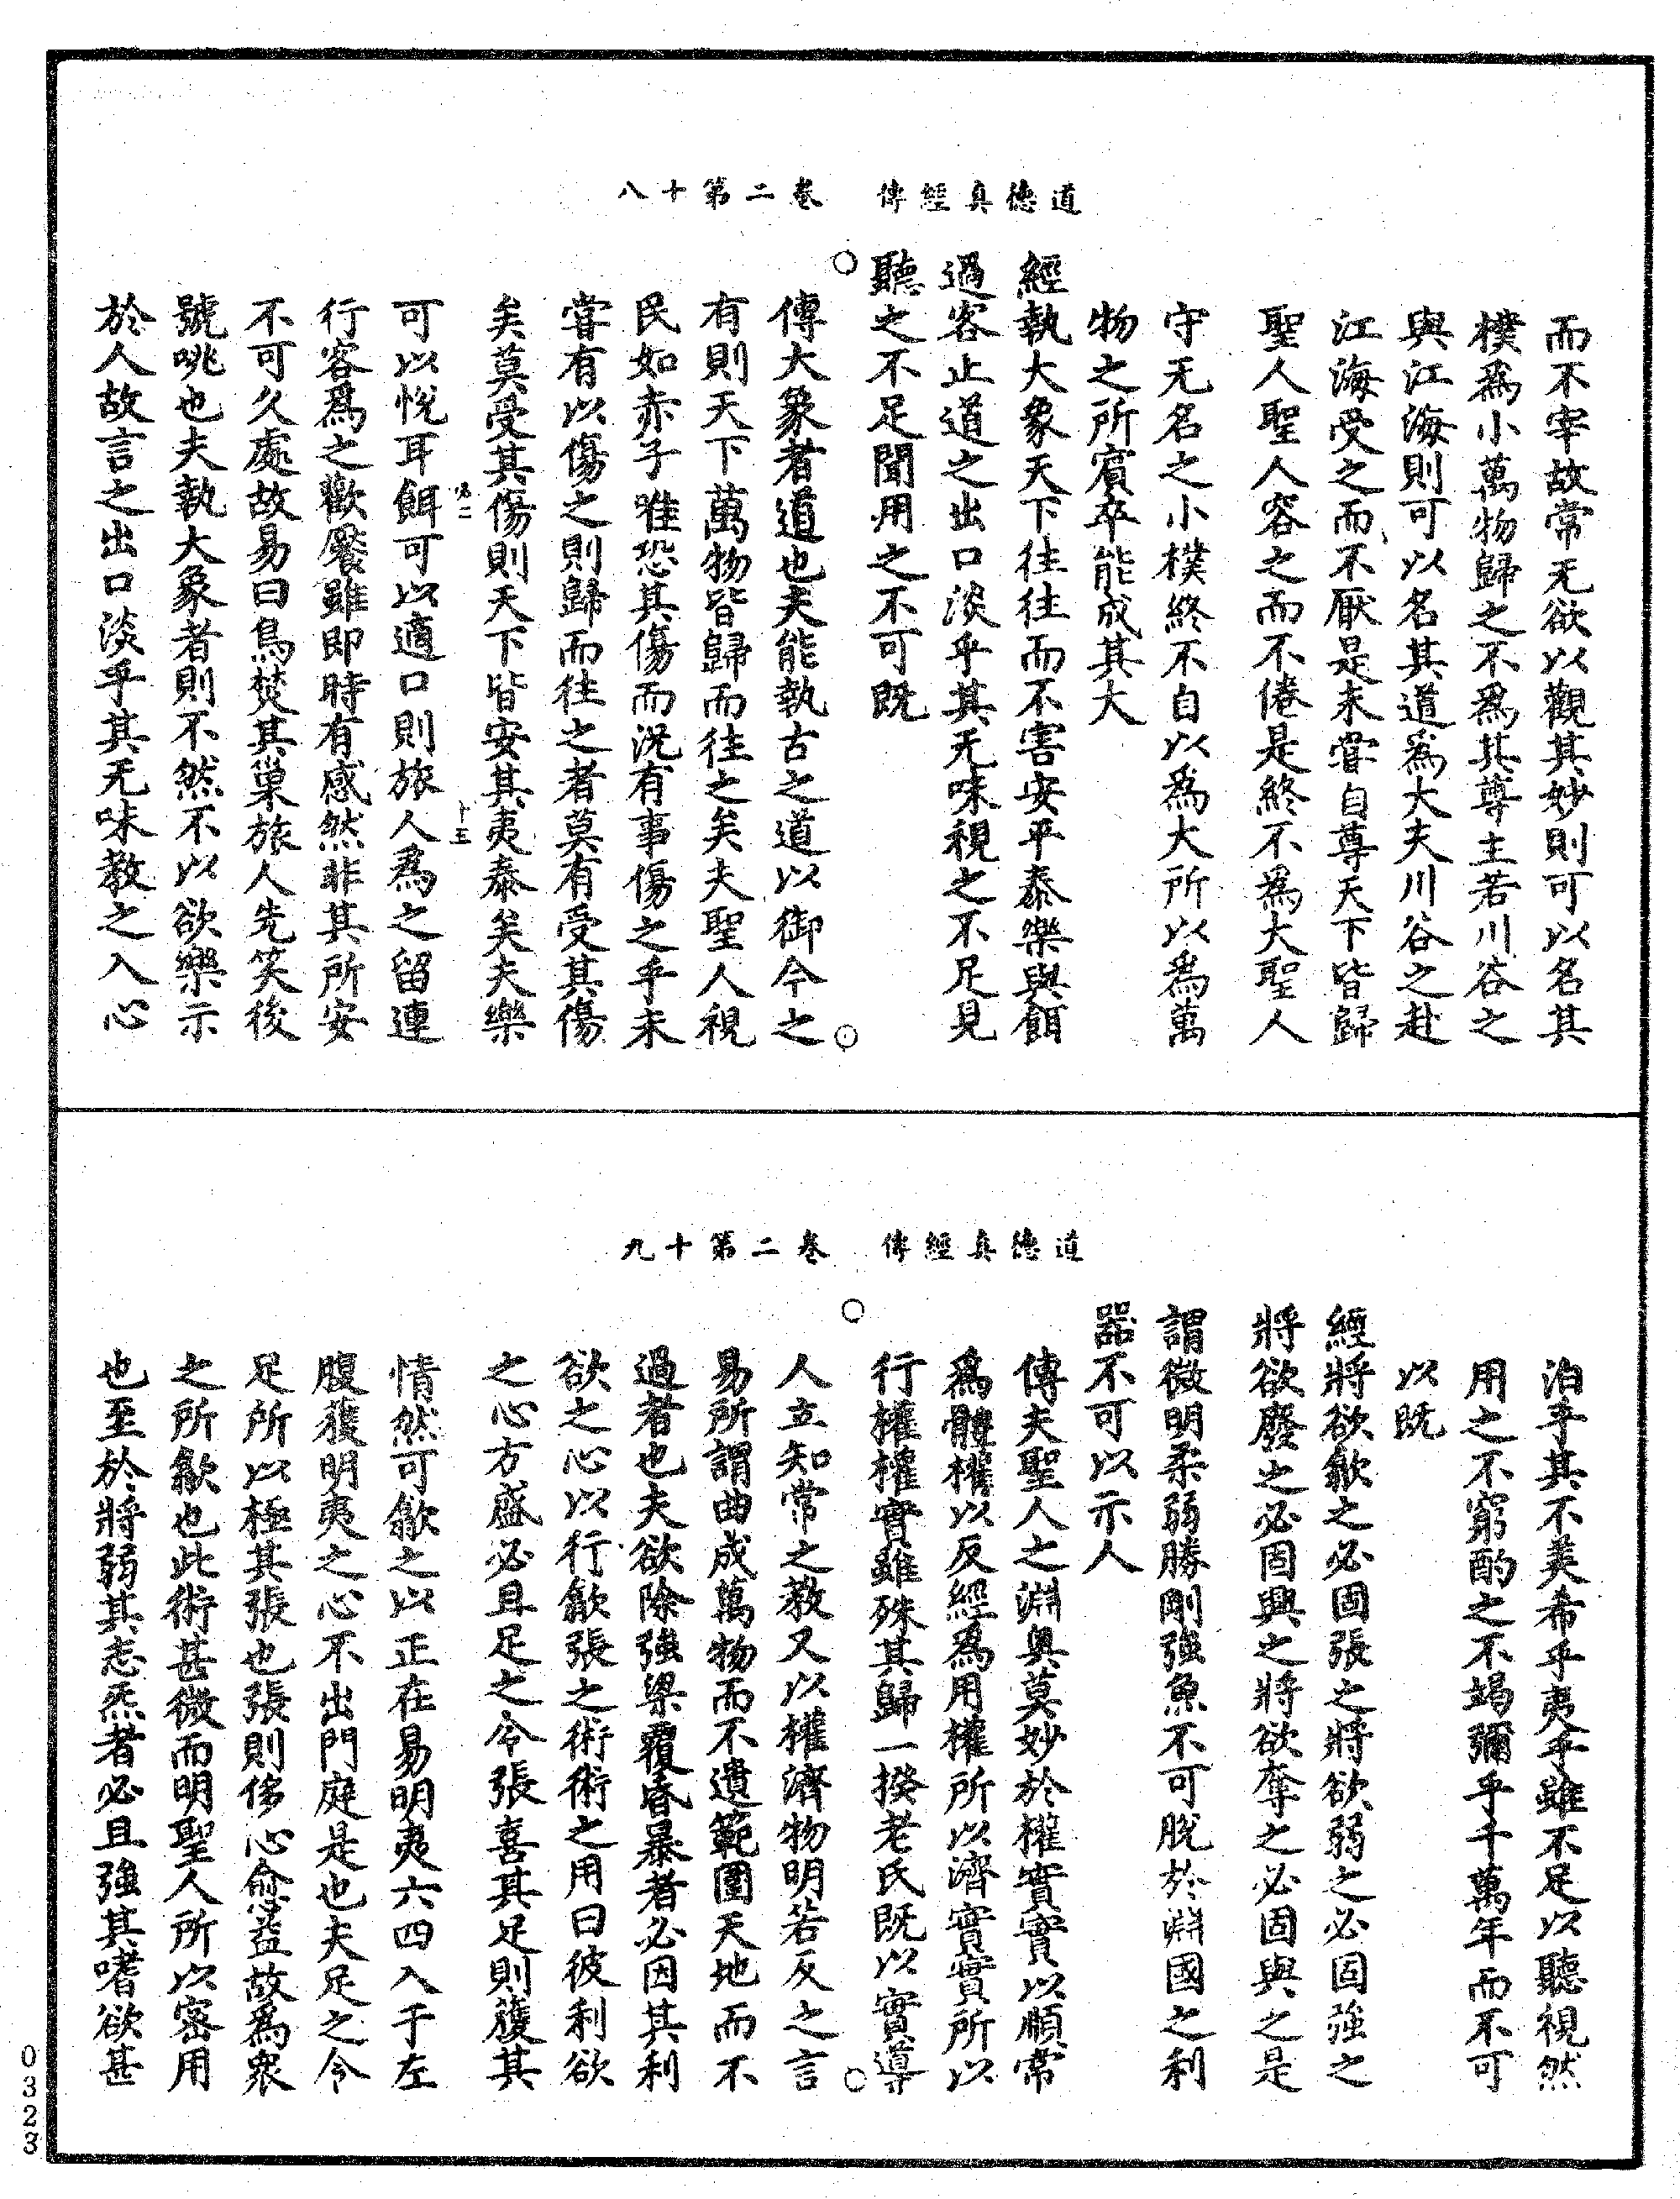 道德真經傳　卷二第十八
而不宰故常无欲以觀其妙則可以名其
樸爲小萬物歸之不爲其尊主若川谷之
與江海則可以名其道爲大夫川谷之赴
江海江海受之而不厭是未甞自尊天下皆歸
聖人聖人容之而不倦是終不爲大聖人
守无名之小樸終不自以爲大所以爲萬
物之所賓卒能成其大
經執大象天下往往而不害安平泰樂與餌
過客止道之出口淡乎其无味視之不足見
聽之不足聞用之不可既
傳大象者道也夫能執古之道以御今之
有則天下萬物皆歸而往之矣夫聖人視
民如赤子唯恐其傷而況有事傷之乎未
甞有以傷之則歸而往之者莫有受其傷
矣莫受其傷則天下皆安其夷泰矣夫樂
可以悅耳餌可以適口則旅人爲之留連
行客爲之歡饜雖即時有感然非其所安
不可久處故易曰鳥焚其巢旅人先笑後
號咷也夫執大象者則不然不以欲樂示
於人故言之出口淡乎其无味教之入心
道德真經傳　卷二第十九
泊乎其不美希乎夷乎雖不足以聽視然
用之不窮酌之不竭彌乎千萬年而不可
以既
經將欲歙之必固張之將欲弱之必固強之
將欲廢之必固興之將欲奪之必固與之是
謂微明柔弱勝剛強魚不可脫於淵國之利
器不可以示人
傳夫聖人之淵奧莫妙於權實實以順常
爲體權以反經爲用權所以濟實實所以
行權權實雖殊其歸一揆老氏既以實導
人立知常之教又以權濟物明若反之言
易所謂曲成萬物而不遺範圍天地而不
過者也夫欲除強梁覆昏暴者必因其利
欲之心以行歙張之術術之用曰彼利欲
之心方盛必且足之令張喜其足則獲其
情然可歙之以正在易明夷六四入于左
腹獲明夷之心不出門庭是也夫足之令
足所以極其張也張則侈心愈益故爲衆
之所歙也此術甚微而明聖人所以密用
也至於將弱其志炁者必且強其嗜欲甚
0323